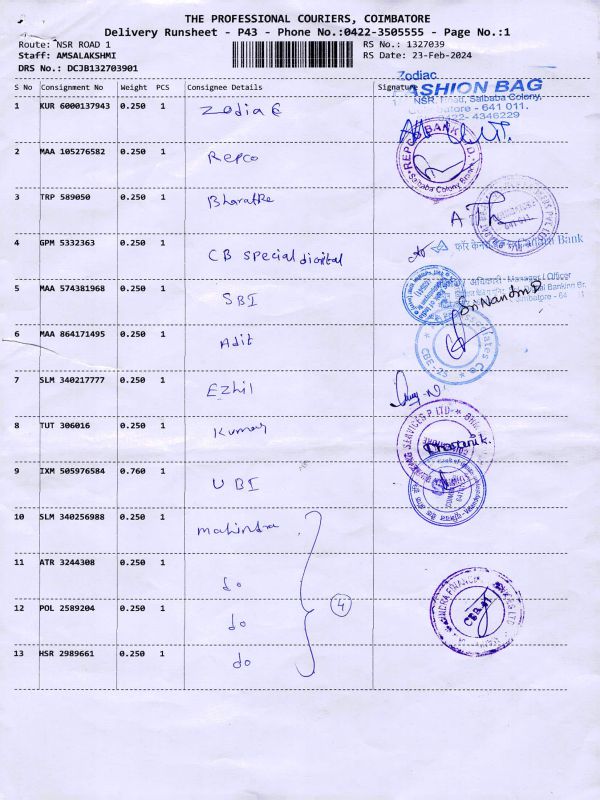 THE PROFESSIONAL COURIERS, COIMBATORE
Delivery Runsheet - P43 - Phone No.:0422-3505555 - Page No.:1
Route: NSR ROAD 1 RS No.: 1327039
Staff: AMSALAKSHMI RS Date: 23-Feb-2024
DRS No.: DCJB132703901
S No Consignment No Weight PCS Consignee Details Signature
Zodiac
FASHION BAG
NSR Road, Saibaba Colony,
Coimbatore - 641 011.
0422- 4346229
1 KUR 6000137943 0.250 1 Zodia C
REPCO BANK LTD.
Saibaba Colony Branch
2 MAA 105276582 0.250 1 Repco
3 TRP 589050 0.250 1 Bharatre
4 GPM 5332363 0.250 1 CB special digital
Bank
5 MAA 574381968 0.250 1 SBI
अधिकारी - Manager / Officer
Sri Nandini D
6 MAA 864171495 0.250 1 Adit
CBE-25
7 SLM 340217777 0.250 1 Ezhil
8 TUT 306016 0.250 1 Kumar
SERVICES P LTD
9 IXM 505976584 0.760 1 UBI
10 SLM 340256988 0.250 1 mahindra
11 ATR 3244308 0.250 1 do
12 POL 2589204 0.250 1 do
4
13 HSR 2989661 0.250 1 do